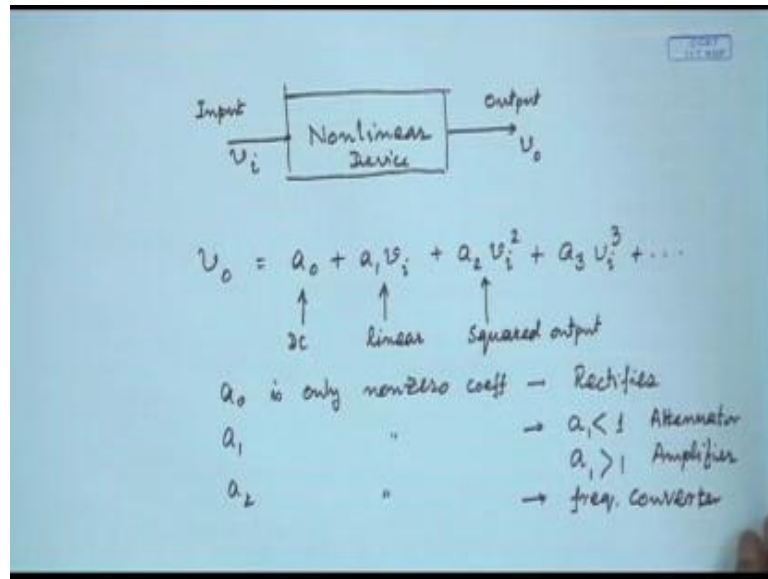 Input
Output
Nonlinear
Device
υᵢ
υₒ
υₒ = a₀ + a₁υᵢ + a₂υᵢ² + a₃υᵢ³ + ...
DC linear Squared output
a₀ is only nonzero coeff – Rectifier
a₁ " → a₁<1 Attenuator
a₁>1 Amplifier
a₂ " → freq. converter